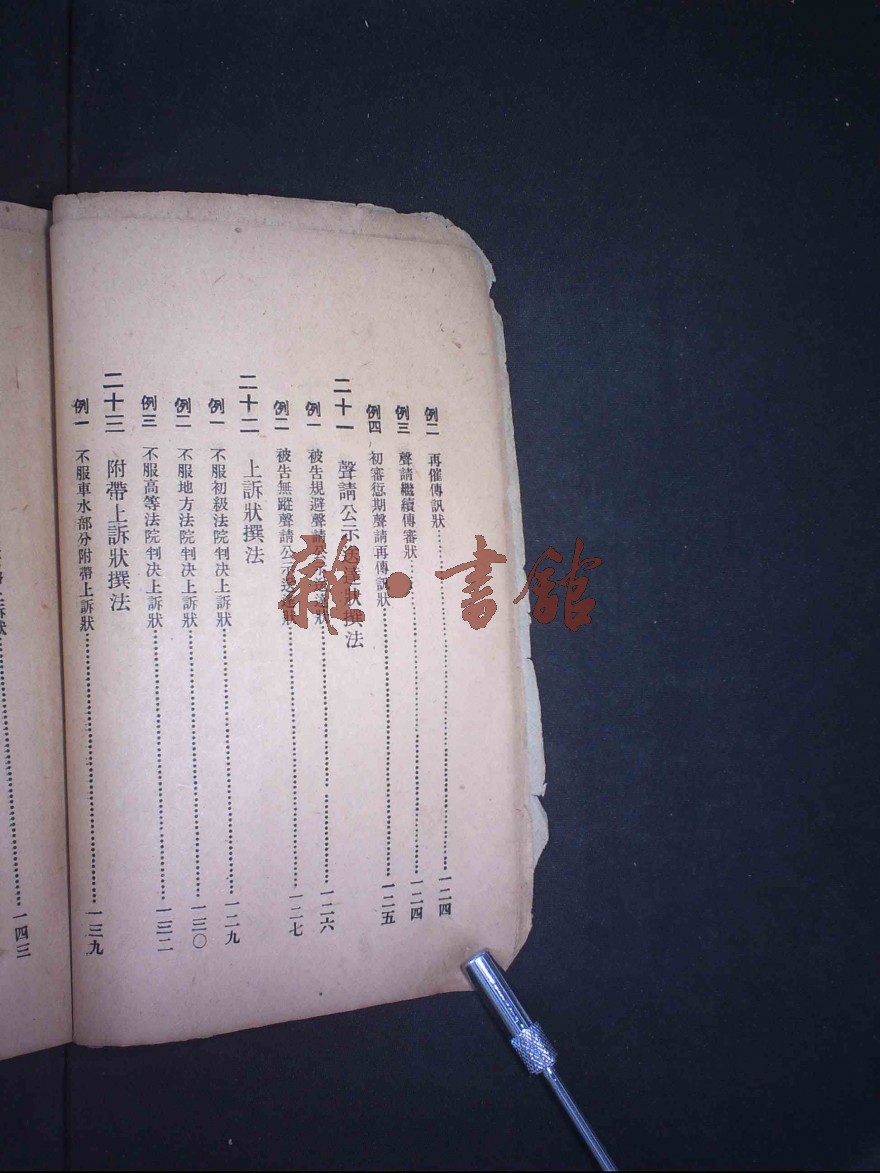 例二 再催傳訊狀……一二四
例三 聲請繼續傳審狀……一二四
例四 初審愆期聲請再傳訊狀……一二五
二十一 聲請公示送達狀撰法
例一 被告規避聲請公示送達狀……一二六
例二 被告無蹤聲請公示送達狀……一二七
二十二 上訴狀撰法
例一 不服初級法院判决上訴狀……一二九
例二 不服地方法院判决上訴狀……一三〇
例三 不服高等法院判决上訴狀……一三二
二十三 附帶上訴狀撰法
例一 不服車水部分附帶上訴狀……一三九
上訴狀……一四三
雜·書館